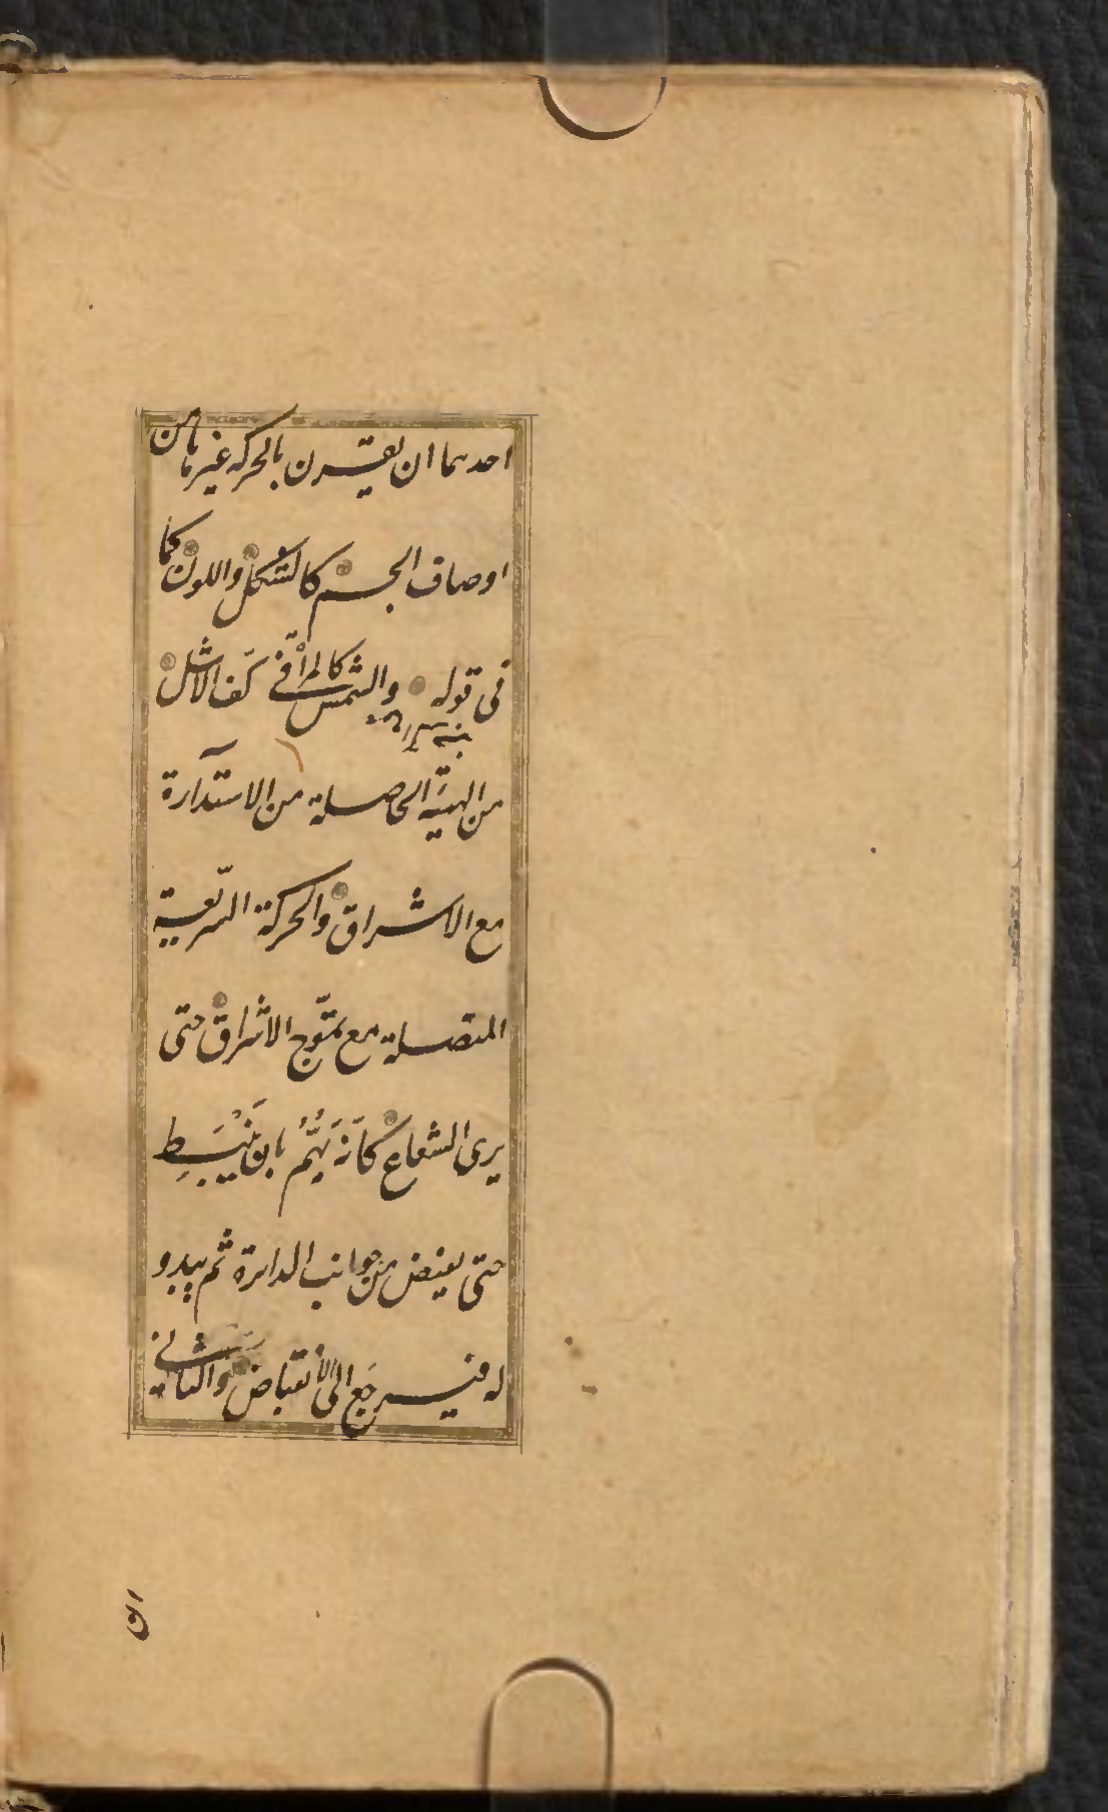 احدهما ان يقترن بالحركة غيرها من
اوصاف الجسم كالشكل واللون كما
فى قوله والشمس كالمرآة فى كف الاشل
من الهيئة الحاصلة من الاستدارة
مع الاشراق والحركة السريعة
المتصلة مع تموّج الاشراق حتى
يرى الشعاع كأنّه يَهُمُّ بان يَنْبَسِط
حتى يفيض من جوانب الدايرة ثم يبدو
له فيرجع الى الأنقباض والثانى
ان